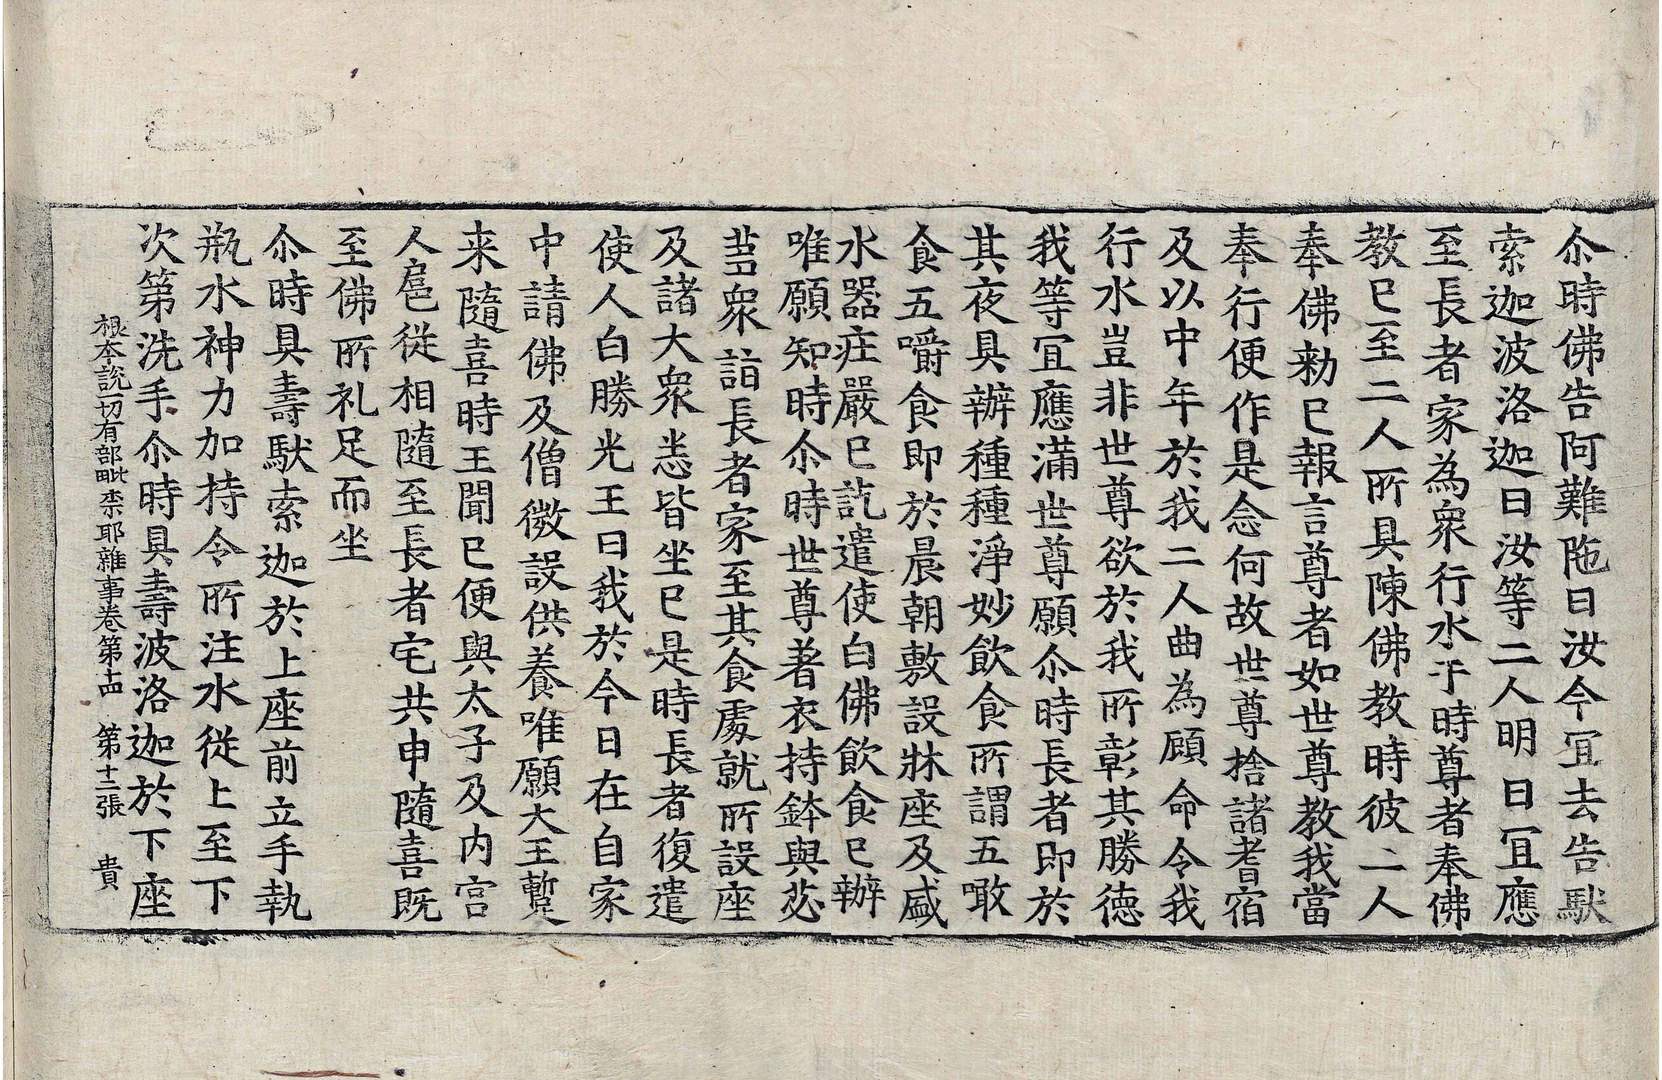 尒時佛告阿難陁曰汝今冝去告䭾
索迦波洛迦曰汝等二人明日冝應
至長者家為衆行水于時尊者奉佛
教已至二人所具陳佛教時彼二人
奉佛勑已報言尊者如世尊教我當
奉行便作是念何故世尊捨諸耆宿
及以中年於我二人曲為顧命令我
行水豈非世尊欲於我所彰其勝德
我等冝應滿世尊願尒時長者即於
其夜具辦種種淨妙飲食所謂五噉
食五嚼食即於晨朝敷設牀座及盛
水器莊嚴已訖遣使白佛飲食已辦
唯願知時尒時世尊著衣持鉢與苾
芻衆詣長者家至其食處就所設座
及諸大衆悉皆坐已是時長者復遣
使人白勝光王曰我於今日在自家
中請佛及僧微設供養唯願大王暫
来隨喜時王聞已便與太子及内宫
人扈從相隨至長者宅共申隨喜既
至佛所礼足而坐
尒時具壽䭾索迦於上座前立手執
瓶水神力加持令所注水從上至下
次第洗手尒時具壽波洛迦於下座
根本說一切有部毗柰耶雜事卷第十四 第十二張 貴